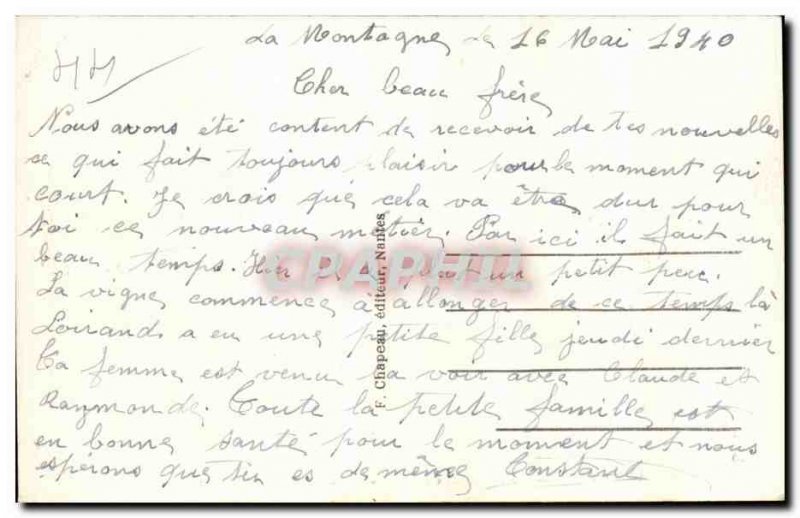 La Montagne le 16 Mai 1940
Cher beau frère
Nous avons été content de recevoir de tes nouvelles
ce qui fait toujours plaisir pour le moment qui
court. Je crois que cela va être dur pour
toi ce nouveau métier. Par ici il fait un
beau temps. Hier il a plut un petit peu.
La vigne commence a allonger de ce temps là
Loirand a eu une petite fille jeudi dernier
Ta femme est venu la voir avec Claude et
Raymonde. Toute la petite famille est
en bonne santé pour le moment et nous
espérons que tu es de même Constant
F. Chapeau, éditeur, Nantes
CPAPHIL